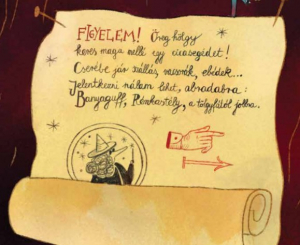 FIGYELEM! Öreg hölgy
keres maga mellé egy cicasegédet!
Cserébe jár szállás, vacsorák, ebédek...
Jelentkezni nálam lehet, alvadabra:
Banyaguff, Rémkastély, a tölgyfától jobbra.